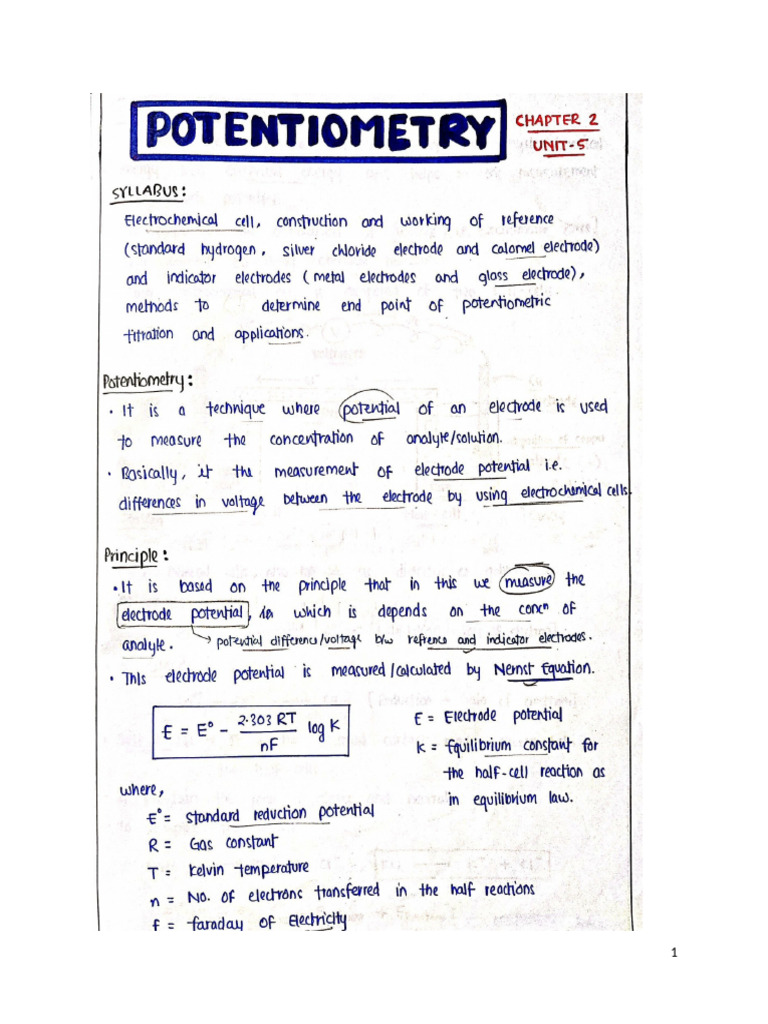 POTENTIOMETRY
CHAPTER 2
UNIT-5
SYLLABUS:
Electrochemical cell, construction and working of reference
(standard hydrogen, silver chloride electrode and calomel electrode)
and indicator electrodes (metal electrodes and glass electrode),
methods to determine end point of potentiometric
titration and applications.
Potentiometry:
• It is a technique where potential of an electrode is used
to measure the concentration of analyte/solution.
• Basically, it the measurement of electrode potential i.e.
differences in voltage between the electrode by using electrochemical cells.
Principle:
• It is based on the principle that in this we measure the
electrode potential, in which is depends on the concⁿ of
analyte. → potential difference/voltage b/w refrence and indicator electrodes.
• This electrode potential is measured/calculated by Nernst Equation.
E = E° - 2.303 RT / nF log K
E = Electrode potential
K = Equilibrium constant for
the half-cell reaction as
in equilibrium law.
where,
E° = standard reduction potential
R = Gas constant
T = Kelvin temperature
n = No. of electrons transferred in the half reactions
f = faraday of Electricity
1